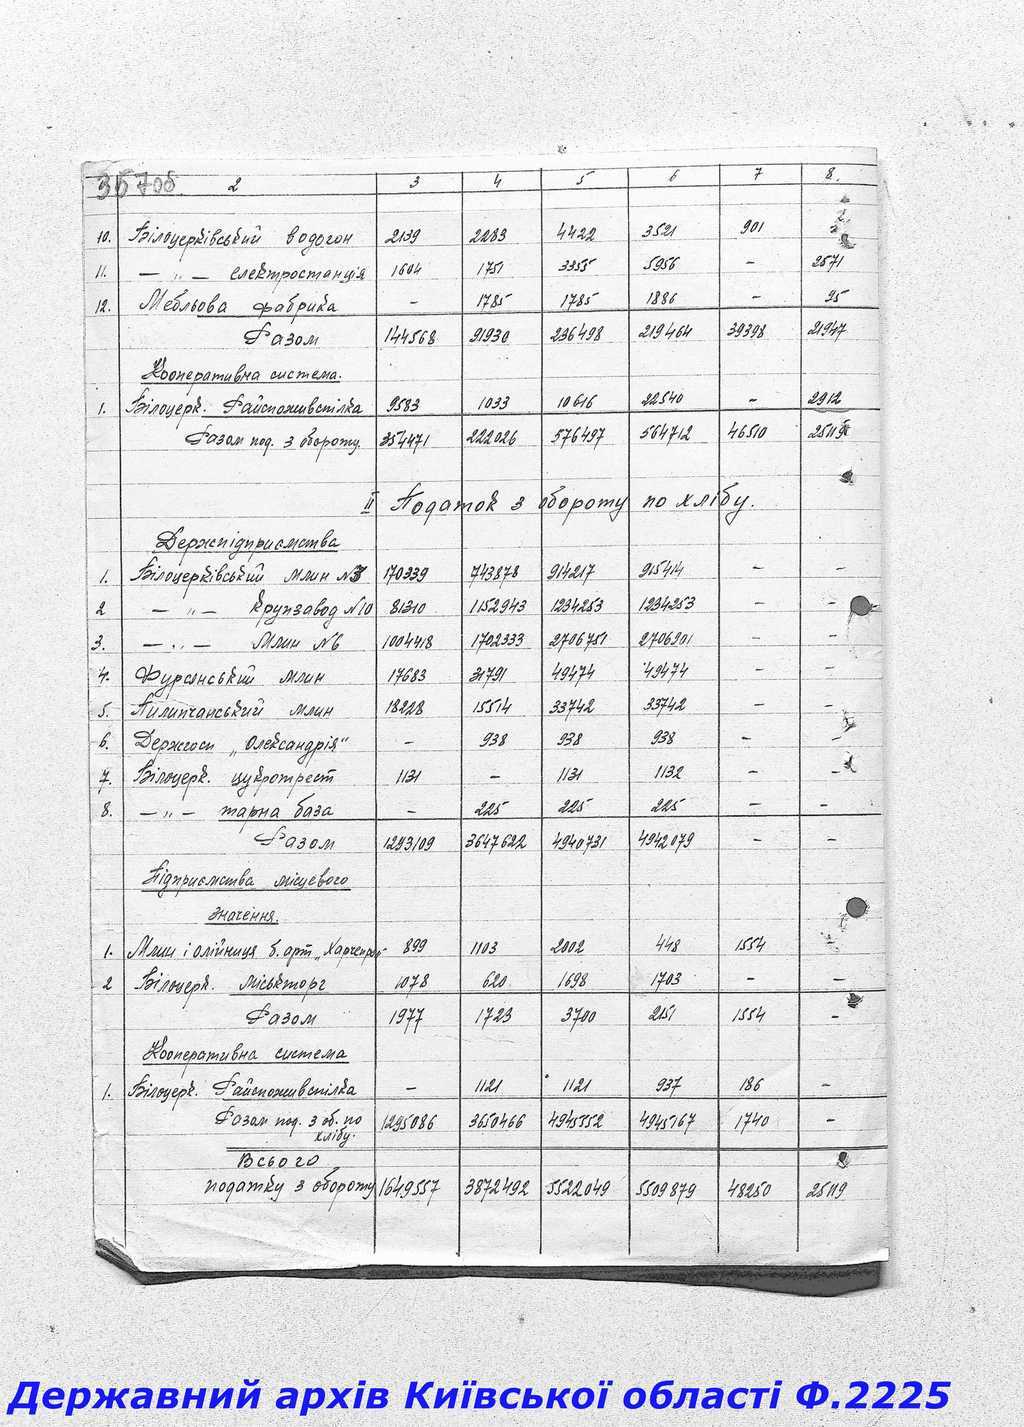 35708
2 3 4 5 6 7 8.
10. Білоцерківський водогон 2139 2283 4422 3521 901
11. — „ — електростанція 1604 1751 3355 5956 - 2571
12. Меблева фабрика - 1785 1785 1886 - 95
Разом 144568 91930 236498 219464 39398 21947
Кооперативна система.
1. Білоцерк. Райспоживспілка 9583 1033 10616 22540 - 2912
Разом под. з обороту. 354471 222026 576497 564712 46510 25119
II Податок з обороту по хлібу.
Держпідприємства
1. Білоцерківський млин №3 170339 743878 914217 915414 - -
2 — „ — Крупзавод №10 81310 1152943 1234253 1234253 - -
3. — „ — Млин №6 1004418 1702333 2706751 2706901 - -
4. Фурсинський млин 17683 31791 49474 49474 - -
5. Пилипчанський млин 18228 15514 33742 33742 - -
6. Держгосп „Олександрія" - 938 938 938 - -
7. Білоцерк. цукротрест 1131 - 1131 1132 - -
8. — „ — тарна база - 225 225 225 - -
Разом 1293109 3647622 4940731 4942079 - -
Підприємства місцевого
значення.
1. Млин і олійниця б. арт „Харчепром" 899 1103 2002 448 1554
2 Білоцерк. міськторг 1078 620 1698 1703 - -
Разом 1977 1723 3700 2151 1554 -
Кооперативна система
1. Білоцерк. Райспоживспілка - 1121 1121 937 186 -
Разом под. з об. по 1295086 3650466 4945552 4945167 1740 -
хлібу.
Всього
податку з обороту 1649557 3872492 5522049 5509879 48250 25119
Державний архів Київської області Ф.2225